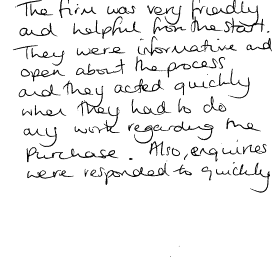 The firm was very friendly
and helpful from the start.
They were informative and
open about the process
and they acted quickly
when they had to do
any work regarding the
purchase. Also, enquiries
were responded to quickly